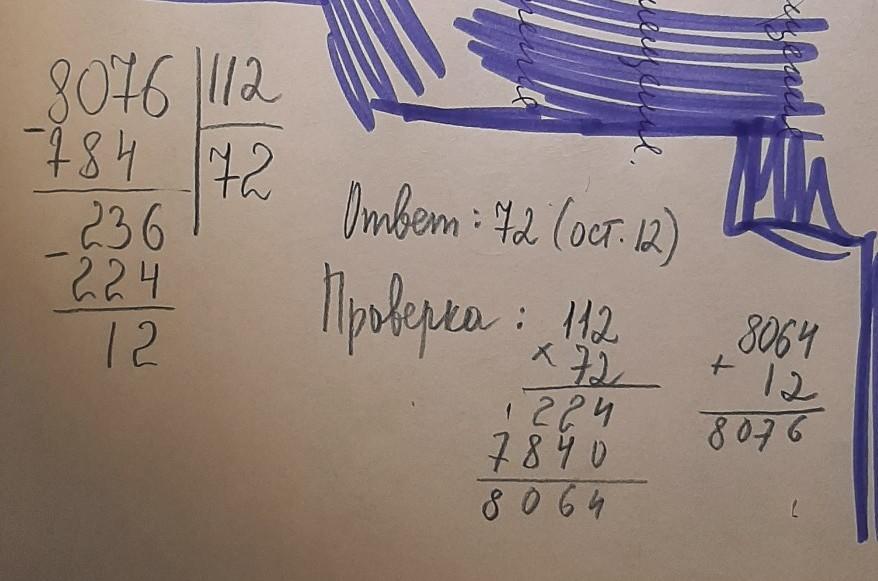 8076 | 112
- 784 | 72
236
- 224
12
Ответ: 72 (ост. 12)
Проверка:
112
× 72
224
7840
8064
8064
+ 12
8076